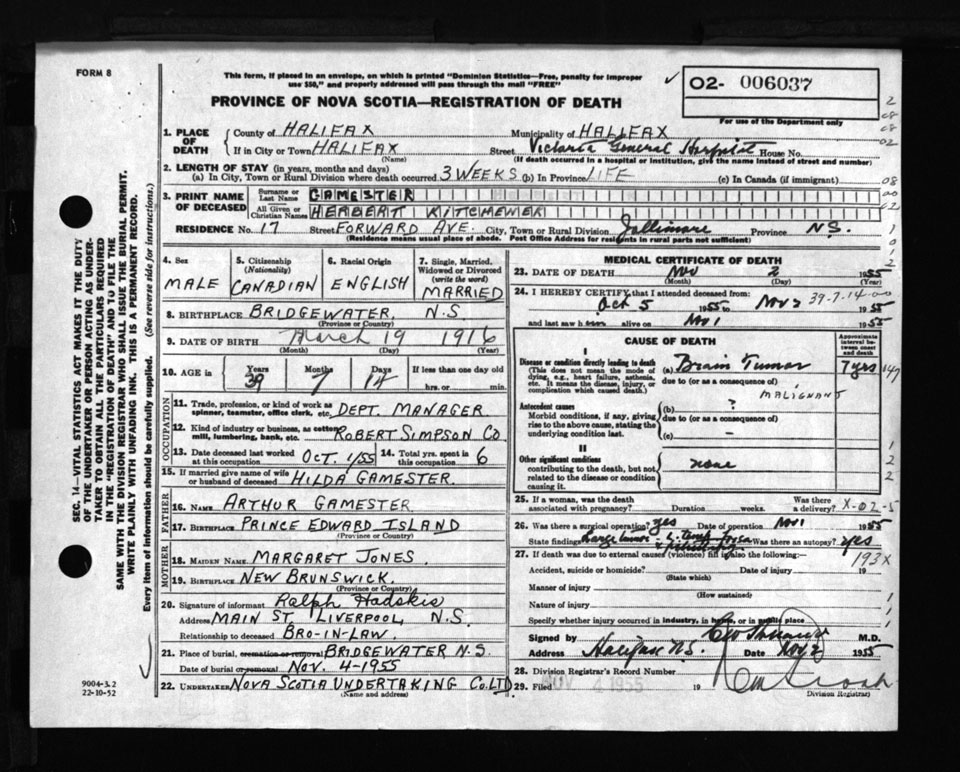 FORM 8
This form, if placed in an envelope, on which is printed "Dominion Statistics—Free, penalty for improper
use $50," and properly addressed will pass through the mail "FREE"
PROVINCE OF NOVA SCOTIA—REGISTRATION OF DEATH
02- 006037
For use of the Department only
1. PLACE OF DEATH
County of HALIFAX Municipality of HALIFAX
If in City or Town HALIFAX Street Victoria General Hospital House No.
(Name) (If death occurred in a hospital or institution, give the name instead of street and number)
2. LENGTH OF STAY (in years, months and days)
(a) In City, Town or Rural Division where death occurred 3 WEEKS (b) In Province LIFE (c) In Canada (if immigrant)
3. PRINT NAME OF DECEASED
Surname or Last Name GAMESTER
All Given or Christian Names HERBERT KITCHEWER
RESIDENCE No. 17 Street FORWARD AVE. City, Town or Rural Division Jollimore Province N.S.
(Residence means usual place of abode. Post Office Address for residents in rural parts not sufficient)
4. Sex
MALE
5. Citizenship (Nationality)
CANADIAN
6. Racial Origin
ENGLISH
7. Single, Married, Widowed or Divorced (write the word)
MARRIED
8. BIRTHPLACE BRIDGEWATER, N.S.
(Province or Country)
9. DATE OF BIRTH March 19 1916
(Month) (Day) (Year)
10. AGE in Years Months Days If less than one day old
39 7 14 hrs. or min.
OCCUPATION
11. Trade, profession, or kind of work as spinner, teamster, office clerk, etc. DEPT. MANAGER
12. Kind of industry or business, as cotton mill, lumbering, bank, etc. ROBERT SIMPSON CO
13. Date deceased last worked at this occupation OCT. 1/55 14. Total yrs. spent in this occupation 6
15. If married give name of wife or husband of deceased HILDA GAMESTER.
FATHER
16. NAME ARTHUR GAMESTER
17. BIRTHPLACE PRINCE EDWARD ISLAND
(Province or Country)
MOTHER
18. MAIDEN NAME MARGARET JONES
19. BIRTHPLACE NEW BRUNSWICK.
(Province or Country)
20. Signature of informant Ralph Hadskis
Address MAIN ST LIVERPOOL, N.S.
Relationship to deceased BRO-IN-LAW.
21. Place of burial, cremation or removal BRIDGEWATER N.S.
Date of burial or removal NOV. 4-1955
22. UNDERTAKER NOVA SCOTIA UNDERTAKING CO. LTD
(Name and address)
MEDICAL CERTIFICATE OF DEATH
23. DATE OF DEATH Nov 2 1955
(Month) (Day) (Year)
24. I HEREBY CERTIFY that I attended deceased from: 39-7-14-00
Oct 5 1955 to Nov 2 1955
and last saw h alive on Nov 1 1955
CAUSE OF DEATH
Approximate interval between onset and death
I
Disease or condition directly leading to death (a) Brain Tumor 7 yrs 147
(This does not mean the mode of dying, e.g., heart failure, asthenia, etc. It means the disease, injury, or complication which caused death.)
due to (or as a consequence of)
MALIGNANT
Antecedent causes (b) ?
Morbid conditions, if any, giving rise to the above cause, stating the underlying condition last.
due to (or as a consequence of)
(c) –
II
Other significant conditions none
contributing to the death, but not related to the disease or condition causing it.
25. If a woman, was the death associated with pregnancy? Duration weeks. Was there a delivery? X-02-5
26. Was there a surgical operation? yes Date of operation Nov 1 1955
State findings Large tumor - L. Temp. Was there an autopsy? yes
27. If death was due to external causes (violence) fill in also the following:— 193X
Accident, suicide or homicide? Date of injury 19
(State which)
Manner of injury
(How sustained)
Nature of injury
Specify whether injury occurred in industry, in home, or in public place
Signed by M.D.
Address Halifax N.S. Date Nov 2 1955
28. Division Registrar's Record Number
29. Filed NOV 4 1955 19
Division Registrar)
SEC. 14—VITAL STATISTICS ACT MAKES IT THE DUTY
OF THE UNDERTAKER OR PERSON ACTING AS UNDER-
TAKER TO OBTAIN ALL THE PARTICULARS REQUIRED
IN THE "REGISTRATION OF DEATH" AND TO FILE THE
SAME WITH THE DIVISION REGISTRAR WHO SHALL ISSUE THE BURIAL PERMIT.
WRITE PLAINLY WITH UNFADING INK. THIS IS A PERMANENT RECORD.
Every item of information should be carefully supplied. (See reverse side for instructions.)
9004-3.2
22-10-52